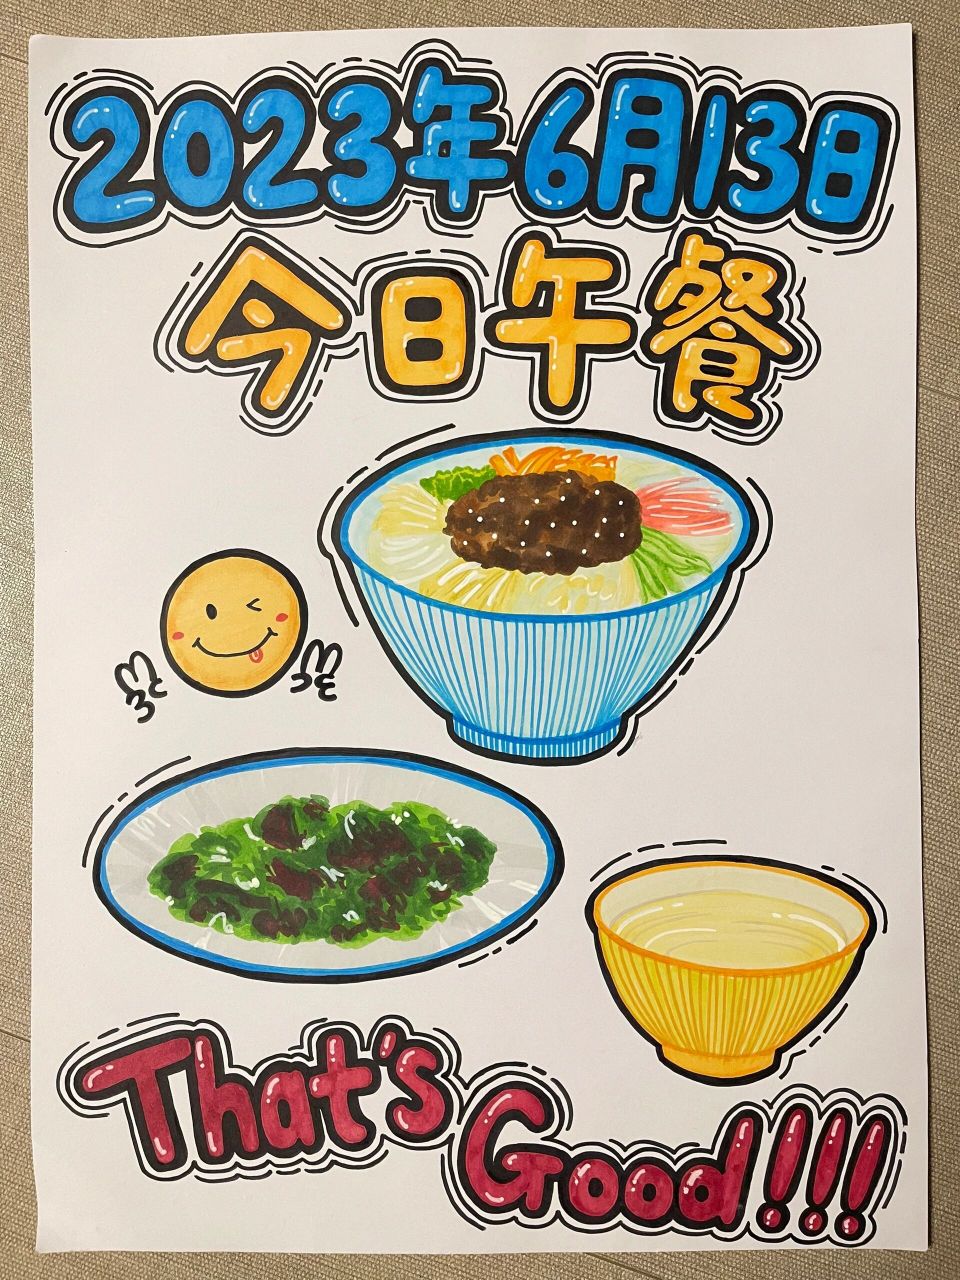 2023年6月13日
今日午餐
That's
Good!!!